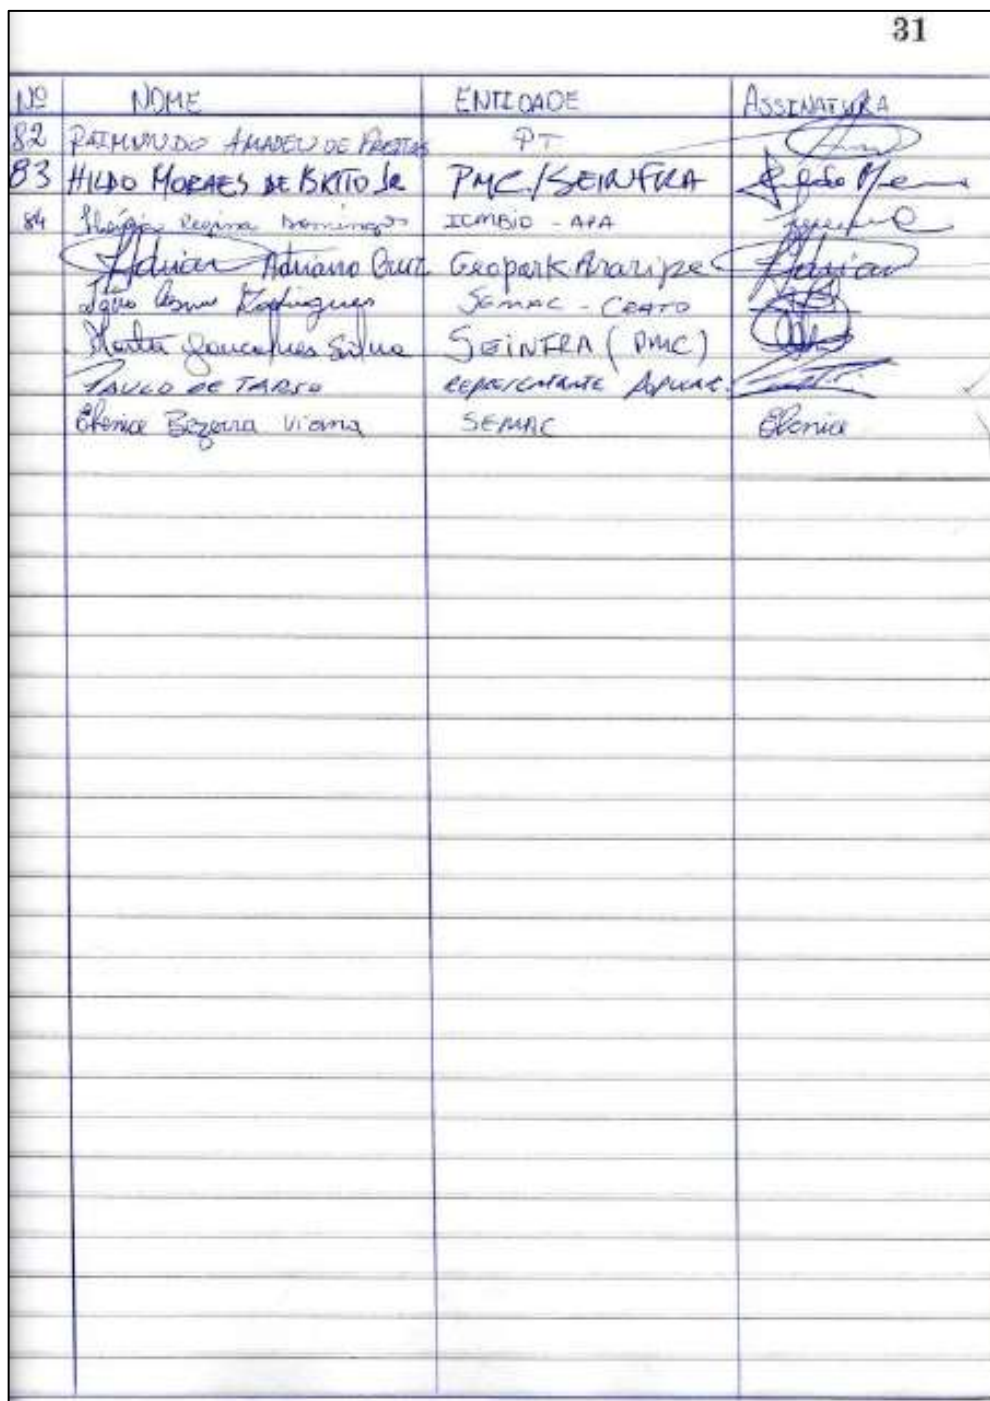 31
Nº NOME ENTIDADE ASSINATURA
82 RAIMUNDO AMADEU DE FREITAS PT
83 HILDO MORAES DE BRITO Jr PMC./SEINFRA
84 Regina Domingos ICMBIO - APA
Adriano Adriano Cruz Geopark Araripe
Rodrigues SEMAC - CRATO
Marta Goncalves Silva SEINFRA (PMC)
PAULO DE TARSO REPRESENTANTE POPULAR.
Elenice Bezerra Viana SEMAC Elenice